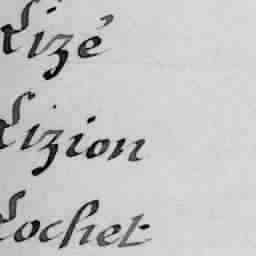 Lizé
Lizion
Lochet